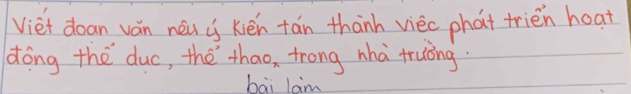 Viết đoạn văn nêu ý kiến tán thành việc phát triển hoạt
động thể dục, thể thao, trong nhà trường.
bài làm